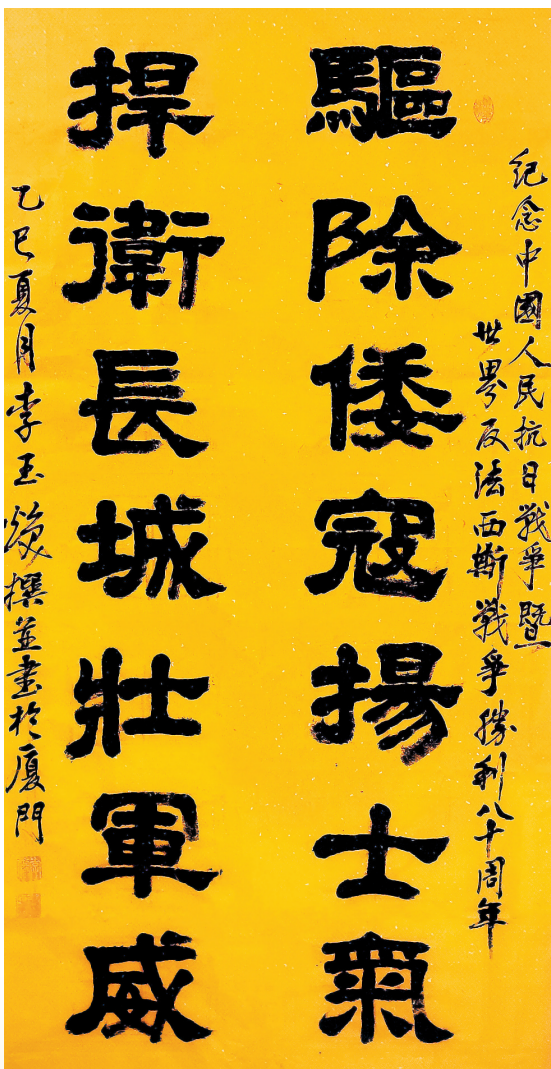 紀念中國人民抗日戰爭暨
世界反法西斯戰爭勝利八十周年
驅除倭寇揚士氣
捍衛長城壯軍威
乙巳夏月李玉撰並書於廈門